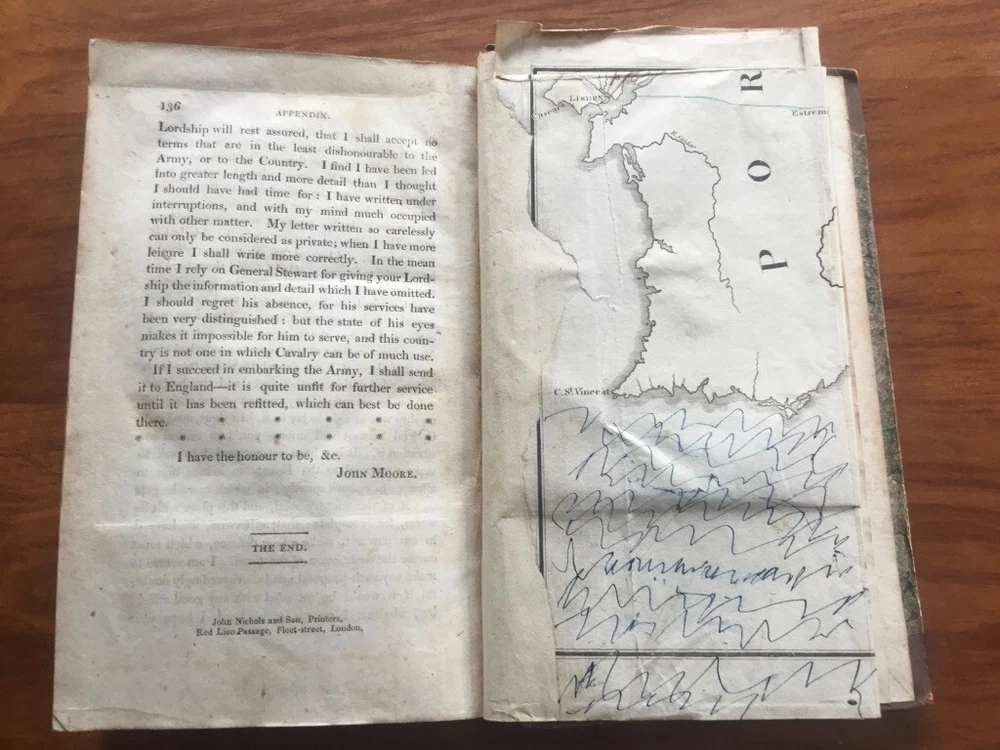 136
APPENDIX.
Lordship will rest assured, that I shall accept no
terms that are in the least dishonourable to the
Army, or to the Country. I find I have been led
into greater length and more detail than I thought
I should have had time for: I have written under
interruptions, and with my mind much occupied
with other matter. My letter written so carelessly
can only be considered as private; when I have more
leisure I shall write more correctly. In the mean
time I rely on General Stewart for giving your Lord-
ship the information and detail which I have omitted.
I should regret his absence, for his services have
been very distinguished: but the state of his eyes
makes it impossible for him to serve, and this coun-
try is not one in which Cavalry can be of much use.
If I succeed in embarking the Army, I shall send
it to England—it is quite unfit for further service
until it has been refitted, which can best be done
there.
* * * * *
* * * * * *
I have the honour to be, &c.
JOHN MOORE.
THE END.
John Nichols and Son, Printers,
Red Lion Passage, Fleet-street, London,
LISBON
Cascais
Estrem
P O R
C. St. Vincent